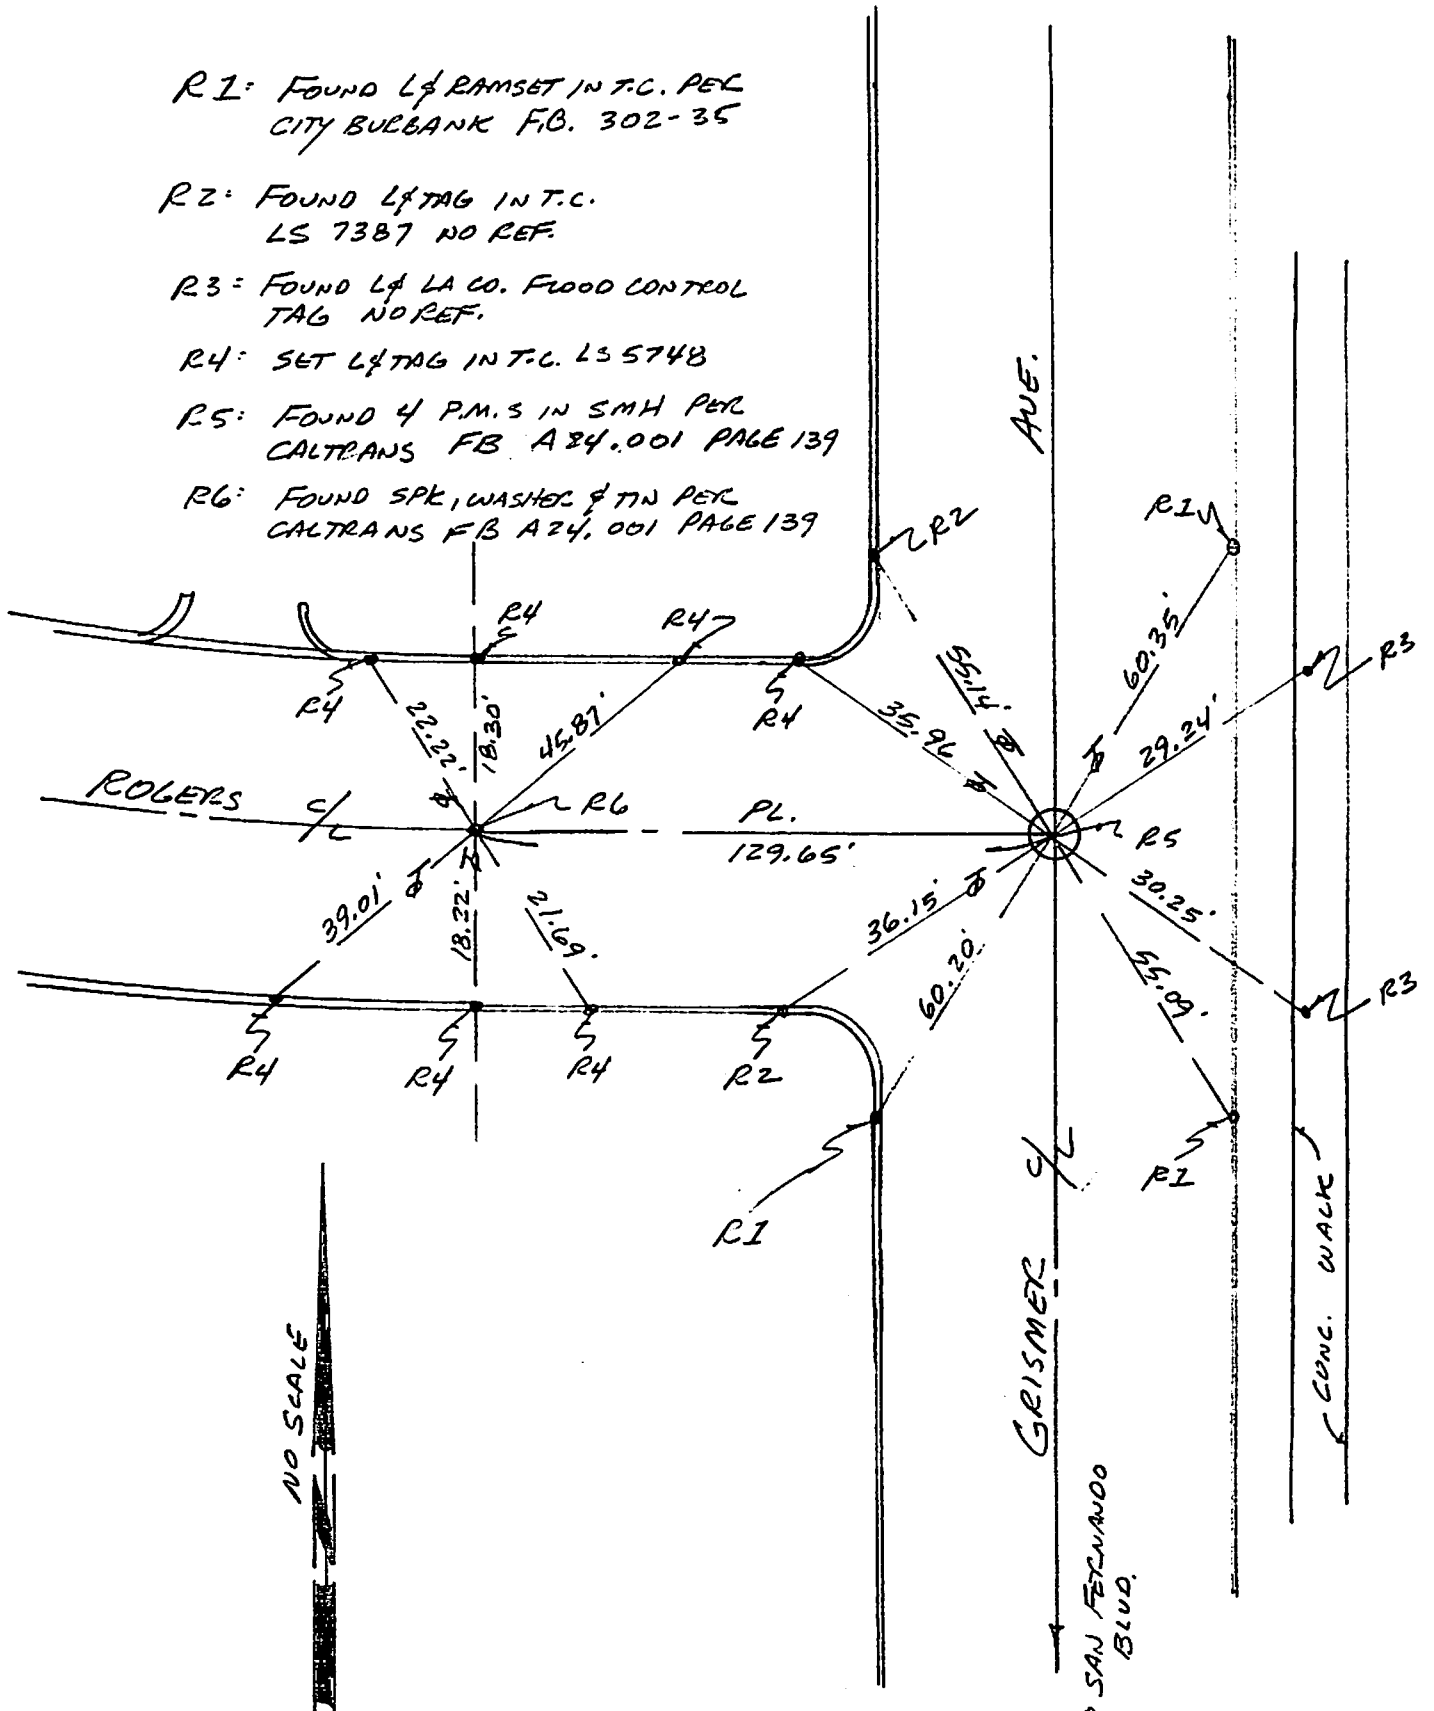 R1: FOUND L& RAMSET IN T.C. PER
CITY BURBANK F.B. 302-35
R2: FOUND L&TAG IN T.C.
LS 7387 NO REF.
R3: FOUND L& LA CO. FLOOD CONTROL
TAG NO REF.
R4: SET L&TAG IN T.C. LS 5748
R5: FOUND 4 P.M.S IN SMH PER
CALTRANS FB A24.001 PAGE 139
R6: FOUND SPK, WASHER & TIN PER
CALTRANS FB A24.001 PAGE 139
AVE.
R2
R1
R4
R4
R3
R4
R4
22.22'
18.30'
45.87'
35.96
55.14'
60.35'
29.24'
ROGERS
C/L
R6
PL.
129.65'
R5
39.01'
18.22'
21.69'
36.15'
60.20'
30.25'
55.09'
R3
R4
R4
R4
R2
R1
R1
C/L
GRISMER
CONC. WALK
NO SCALE
SAN FERNANDO
BLVD.